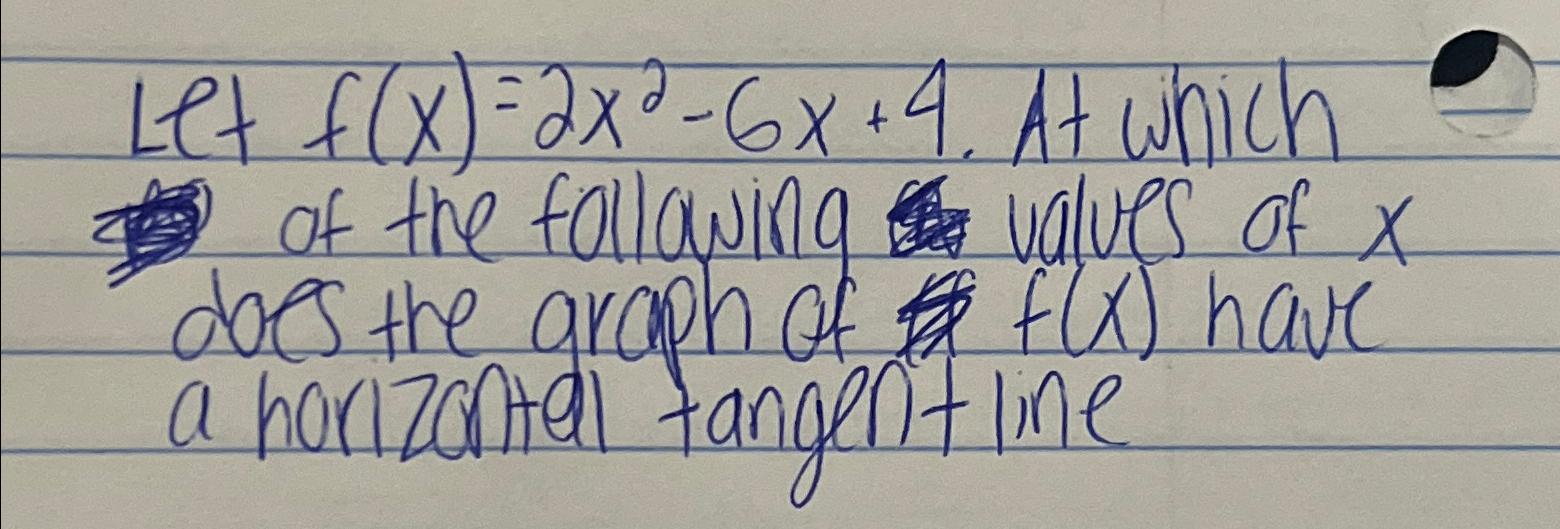 Let f(x)=2x²-6x+4. At which
of the following values of x
does the graph of f(x) have
a horizontal tangent line